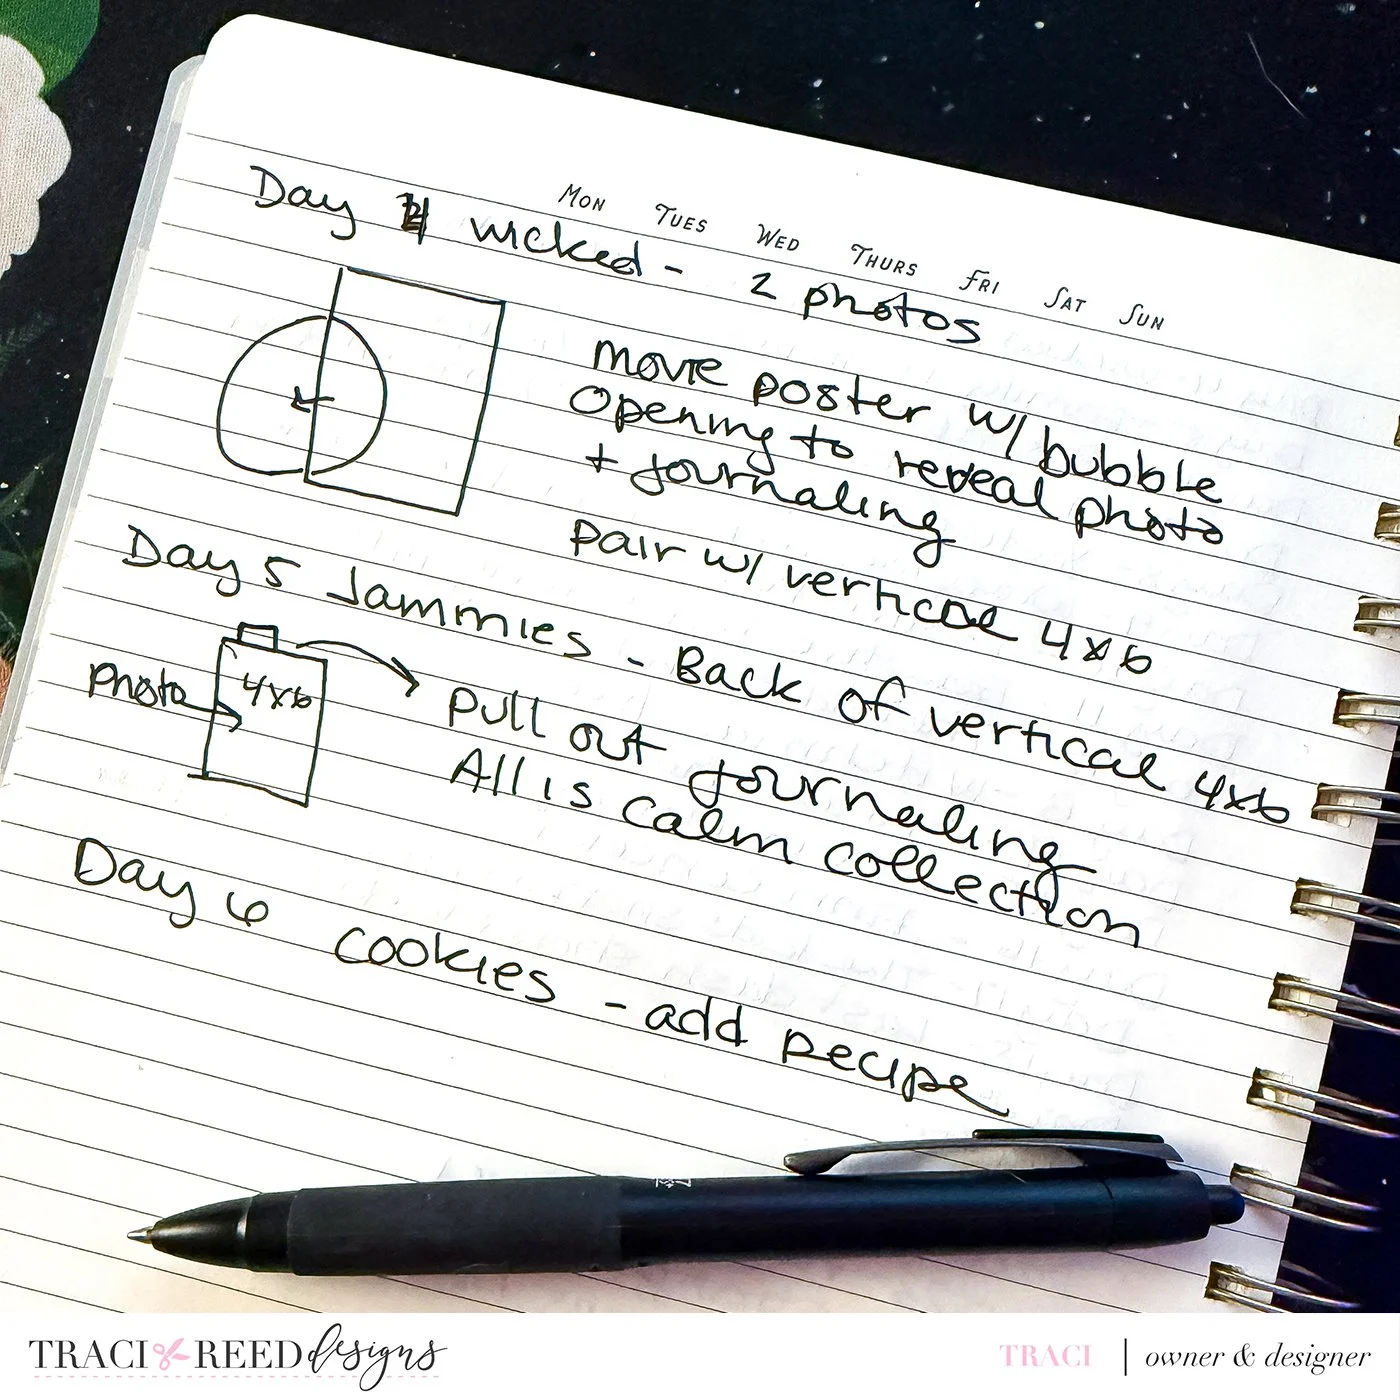 MON TUES WED THURS FRI SAT SUN
Day 4 wicked - 2 photos
movie poster w/ bubble
Opening to reveal photo
+ journaling
pair w/ vertical 4x6
Day 5 Jammies - Back of vertical 4x6
photo
4x6
pull out journaling
All is calm collection
Day 6 cookies - add recipe
TRACI REED designs
TRACI | owner & designer